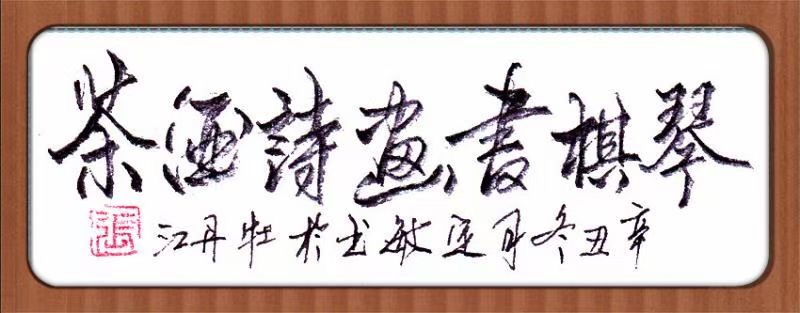 琴棋書畫詩酒茶
辛丑冬月定敏书於牡丹江